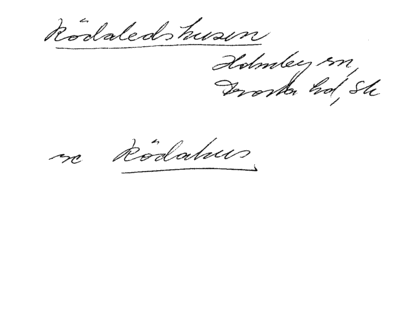 Rödaledshusen
Holmby sn,
Frosta hd, Sk
se Rödahus